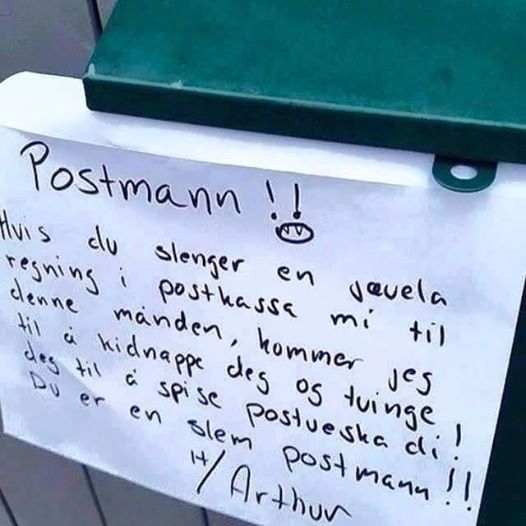 Postmann!!
Hvis du slenger en jævela
regning i postkassa mi til
denne månden, kommer jeg
til å kidnappe deg og tvinge
deg til å spise postveska di!
Du er en slem postmann!!
H/Arthur